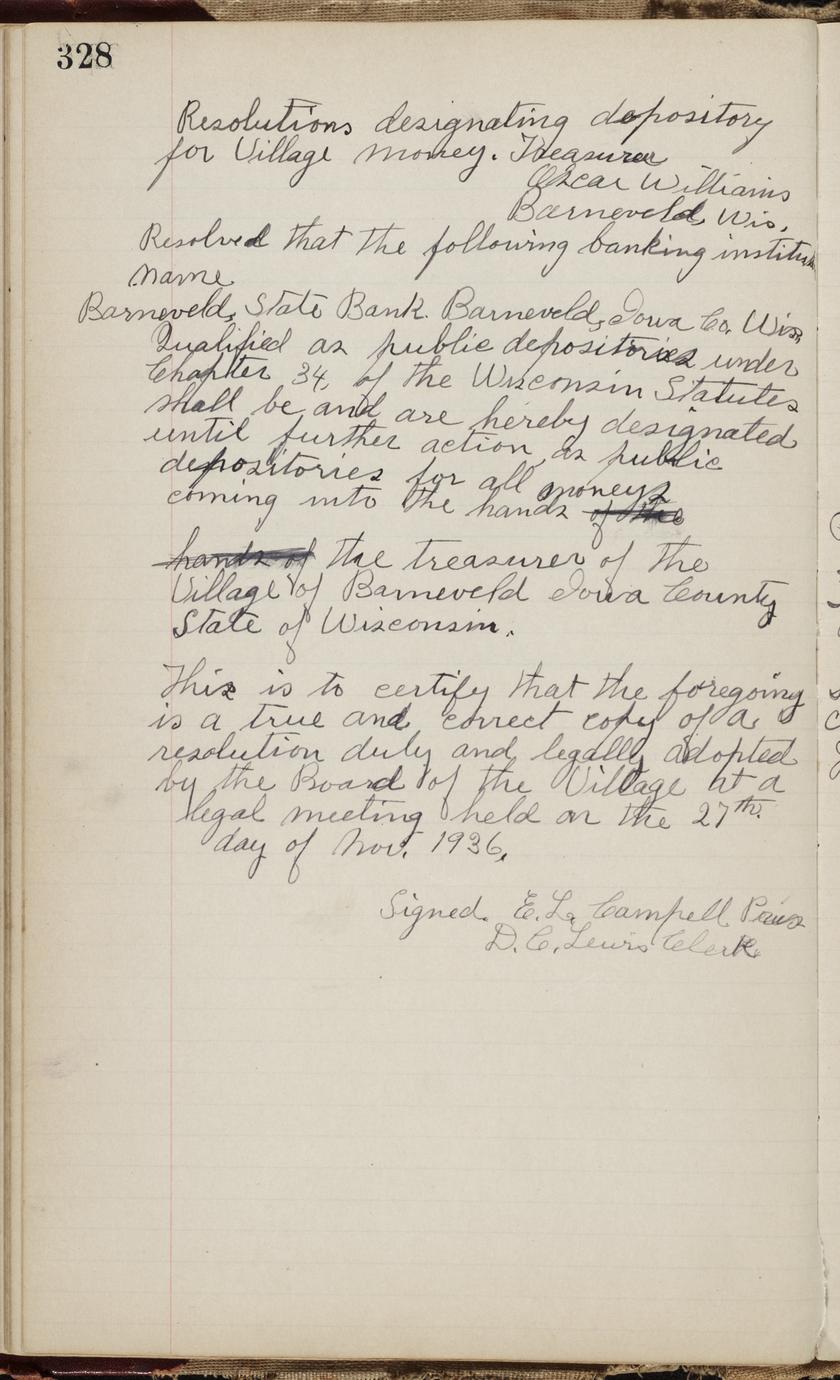 328
Resolutions designating depository
for Village money. Treasurer
Oscar Williams
Barneveld, Wis.
Resolved that the following banking
name
Barneveld, State Bank. Barneveld, Iowa Co. Wis.
Qualified as public depositories under
Chapter 34, of the Wisconsin Statutes
shall be and are hereby designated
until further action, as public
depositories for all moneys
coming into the hands of the
hands of the treasurer of the
Village of Barneveld Iowa County
State of Wisconsin.
This is to certify that the foregoing
is a true and correct copy of a
resolution duly and legally adopted
by the Board of the Village at a
legal meeting held on the 27th.
day of Nov. 1936.
Signed. E. L. Campell
D. C. Lewis Clerk